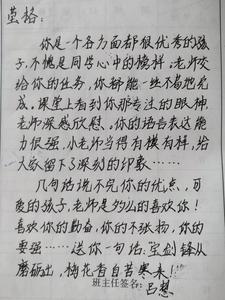 萤格：
你是一个各方面都很优秀的孩
子，不愧是同学心中的榜样，老师交
给你的任务，你都能一丝不苟地完
成。课堂上看到你那专注的眼神，
老师深感欣慰。你的语言表达能
力很强，小老师当得有模有样，给
大家留下了深刻的印象……
几句话说不完你的优点，可
爱的孩子，老师是多么的喜欢你！
喜欢你的勤奋，你的不张扬，你的
要强……送你一句话：宝剑锋从
磨砺出，梅花香自苦寒来！
班主任签名：吕慧